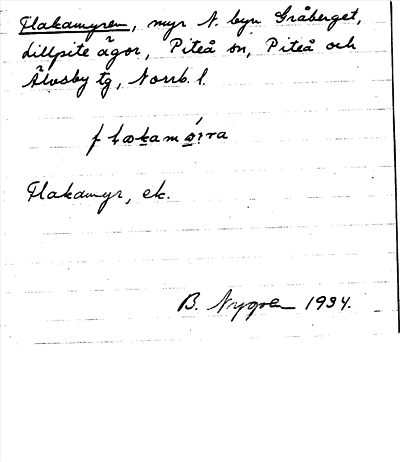 Flakamyren, myr N. byn Gråberget,
Lillpite ägor, Piteå sn, Piteå och
Älvsby tg, Norrb. l.
Flakamyr, ek.
B. Nygren 1934.